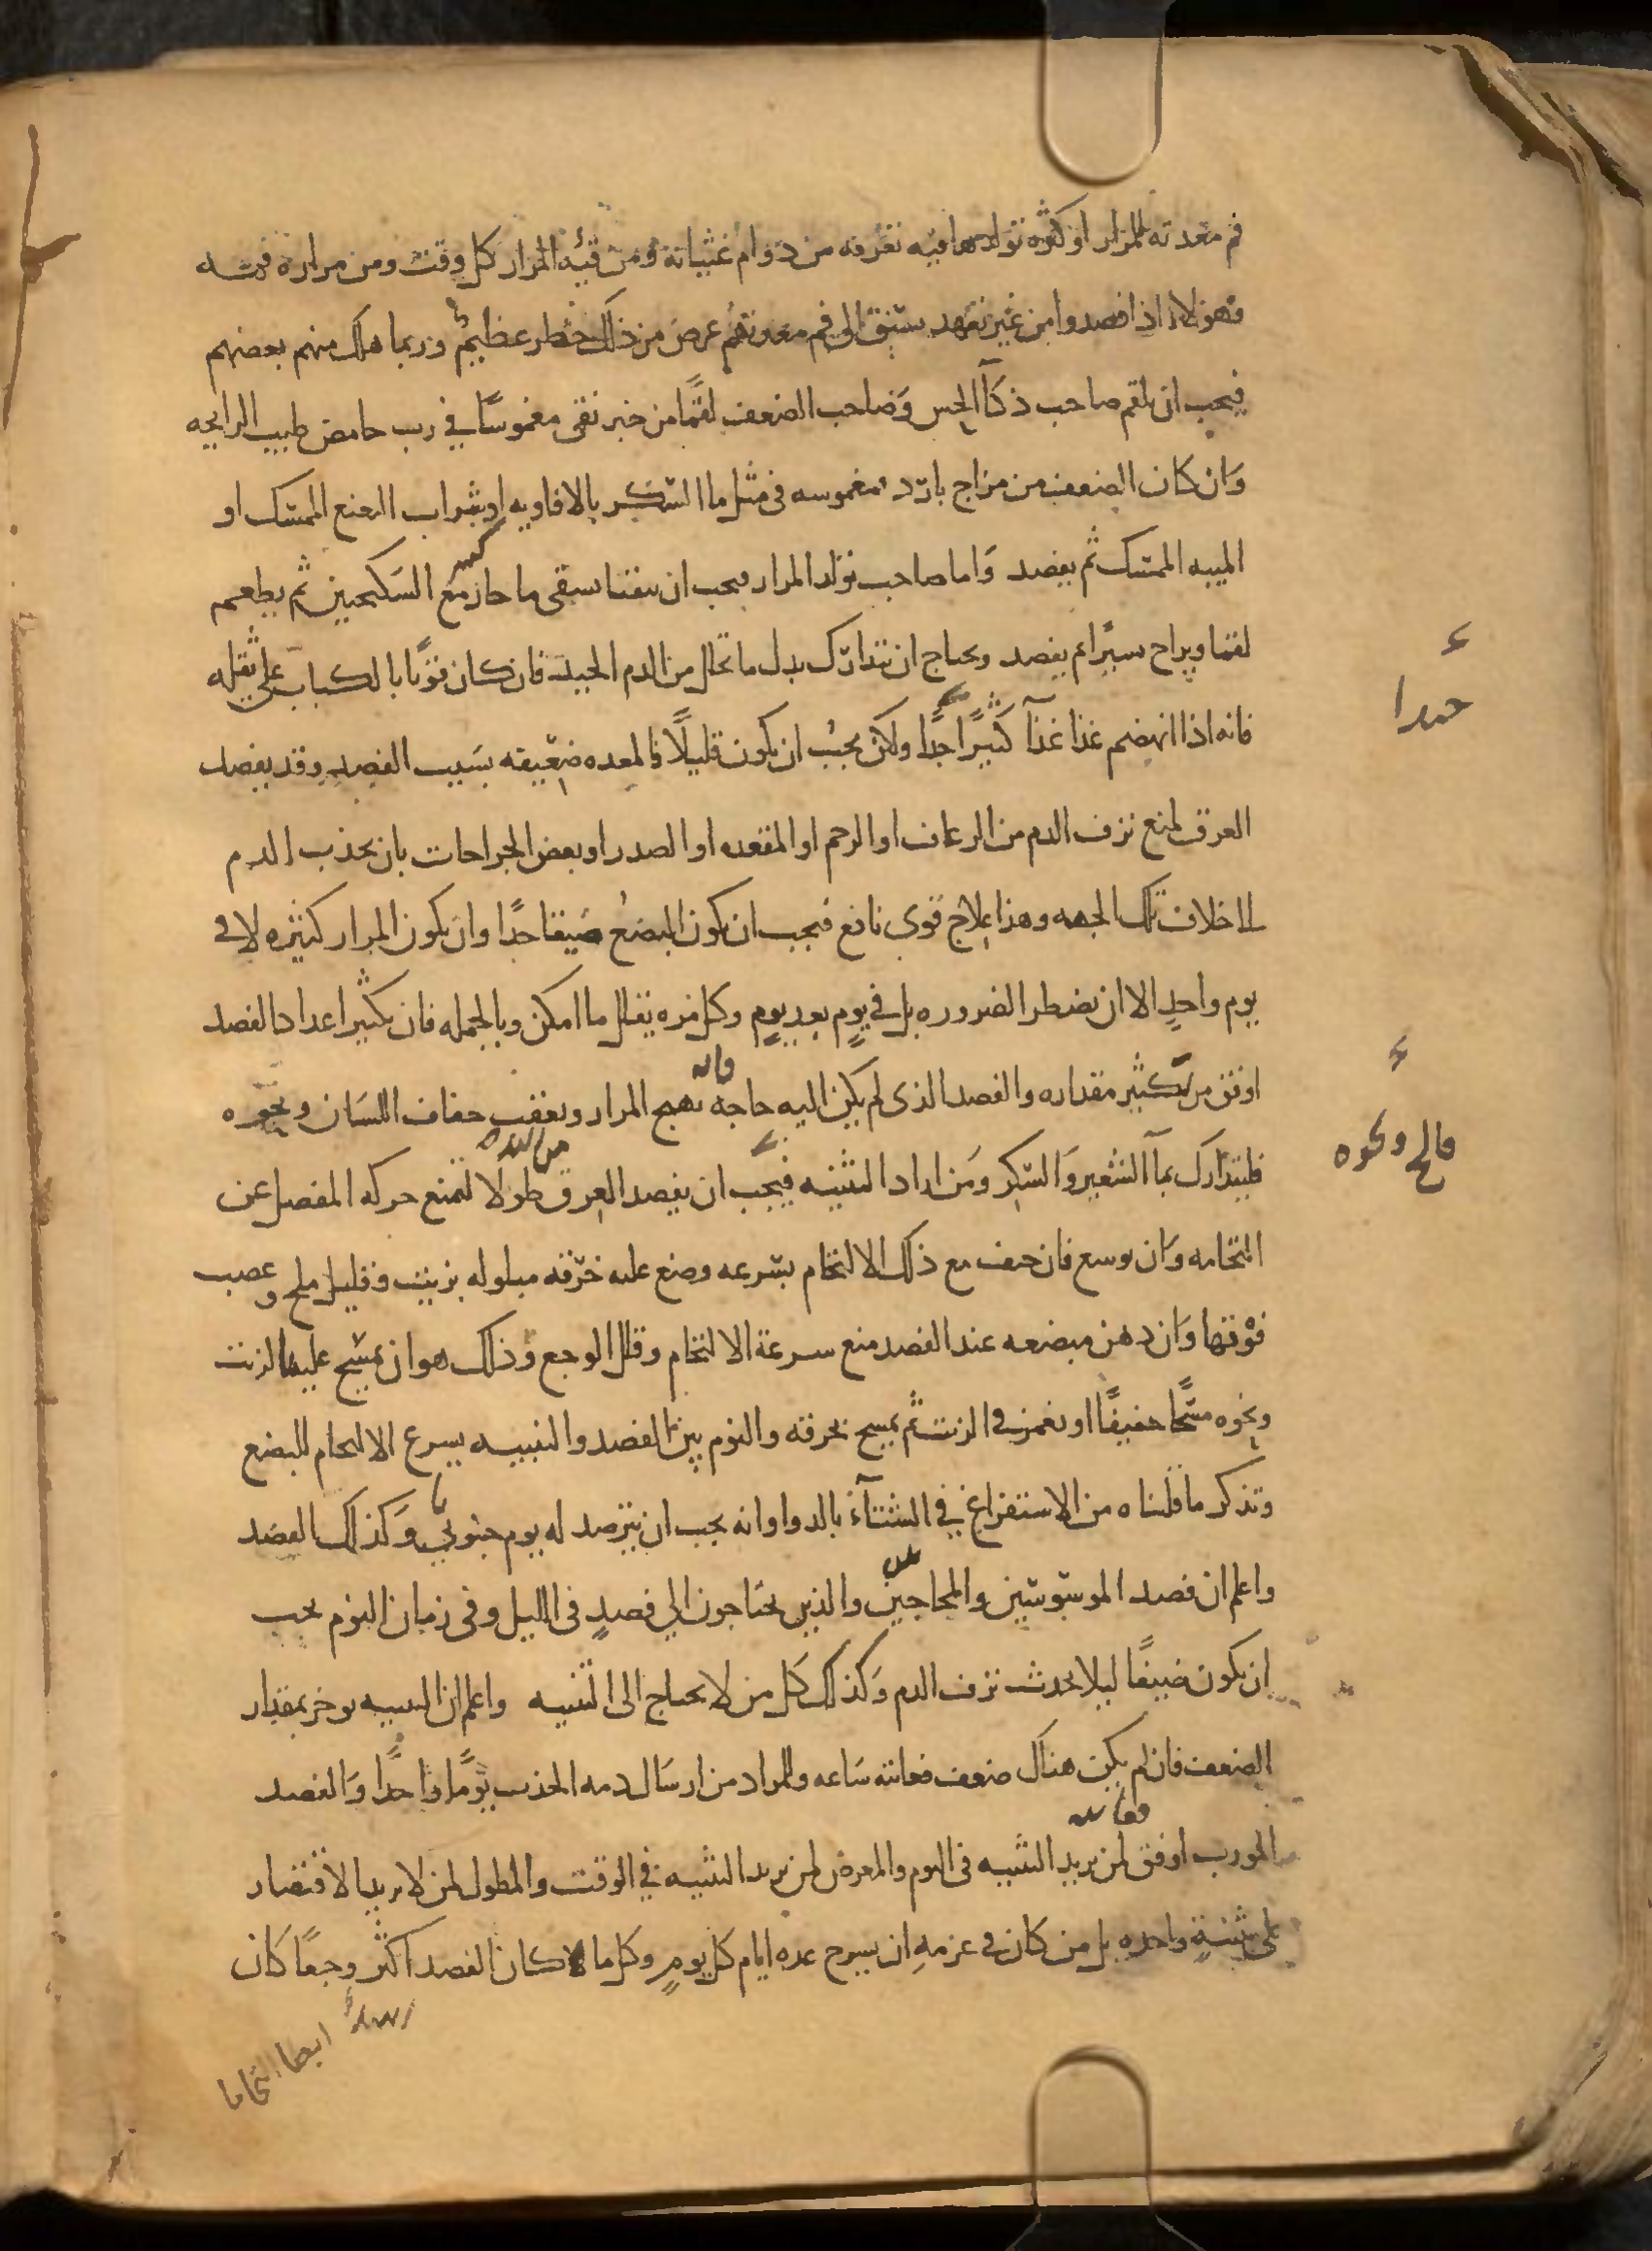 فم معدته للمرار او كثره تولدها فيه تعرفه من دوام غثيانه ومن قيئه المرار كل وقت ومن مراره فمه
فهولاء اذا فصدوا من غير تعهد سبق الى فم معدتهم عرض من ذلك خطر عظيم وربما هلك منهم بعضهم
فيجب ان يلقم صاحب ذكآ الحس وصاحب الضعف لقمًا من خبز نقى مغموسًا في رب حامض طيب الرايحه
وان كان الضعف من مزاج بارد مغموسه فى مثل ما السكر بالافاويه او شراب النعنع الممسك او
الميبه الممسك ثم يفصد واما صاحب تولد المرار فيجب ان يتقيا بسقى ما حار مع السكنجبين ثم يطعم
لقما ويراح يسيرا ثم يفصد ويحتاج ان يتدارك بدل ما تحلل من الدم الجيد فان كان قويًا بالكباب على ثقله
فانه اذا انهضم غذا غذآ كثيرًا جدًا ولكن يجب ان يكون قليلًا فالمعده ضعيفه بسبب الفصد وقد يفصد
العرق لمنع نزف الدم من الرعاف او الرحم او المقعده او الصدر او بعض الجراحات بان يجذب الدم
الى خلاف تلك الجهه وهذا علاج قوى نافع فيجب ان يكون البضع ضيقا جدًا وان يكون المرار كثيره لا فى
يوم واحدٍ الا ان تضطر الضروره بل في يومٍ بعد يومٍ وكل مره يقلل ما امكن وبالجمله فان تكثير اعداد الفصد
اوفق من تكثير مقداره والفصد الذى لم يكن اليه حاجه فانه يهيج المرار ويعقب جفاف اللسان ونحوه
فليتدارك بمآ الشعير والسكر ومن اراد التثنيه فيجب ان يفصد العرق طولا لتمنع حركه المفصل عن
التحامه وان يوسع فان خيف مع ذلك الالتحام بسرعه وضع عليه خرقه مبلوله بزيت وقليل ملح وعصب
فوقها وان دهن مبضعه عند الفصد منع سرعة الالتحام وقلل الوجع وذلك هو ان يمسح عليها الزيت
ونحوه مسحًا خفيفًا او يغمز في الزيت ثم يمسح بخرقه والنوم بين الفصد والتثنيه يسرع الالتحام للبضع
وتذكر ما قلناه من الاستفراغ في الشتآء بالدوا وانه يجب ان يترصد له يوم جنوبي وكذلك الفصد
واعلم ان فصد الموسوسين والمجاجين والذين يحتاجون الى فصدٍ فى الليل وفى زمان النوم يجب
ان يكون ضيقًا ليلا يحدث نزف الدم وكذلك كل من لا يحتاج الى التثنيه واعلم ان التثنيه توخر بمقدار
الضعف فان لم يكن هناك ضعف فغايته ساعه والمراد من ارسال دمه الجذب يومًا واحدًا والفصد
المورب اوفق لمن يريد التثنيه فى اليوم والمعرض لمن يريد التثنيه في الوقت والمطول لمن لا يريد الاقتصار
على تثنيةٍ واحده بل من كان فى عزمهِ ان يسرح عده ايام كل يومٍ وكل ما كان الفصد اكثر وجعًا كان
ايضا التحاما
جدا
فالج ونحوه